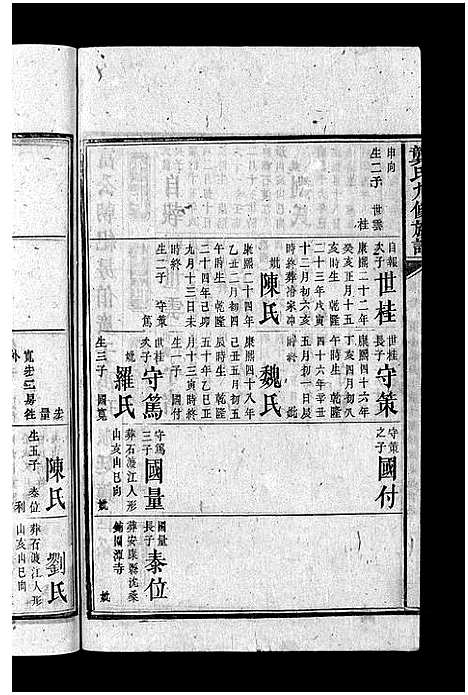 龔氏九修族譜
申向
生二子 世雲
桂
自報
次子
世桂
康熙二十二年
癸亥正月十五
亥時生 乾隆
二十三年戊寅
十二月初六亥
時終葬洛家冲
妣
陳氏
康熙二十四年
乙丑二月初四
午時生 乾隆
二十四年己卯
九月十三日未
時終
生二子 守策
篤
世桂
長子
守策
康熙四十六年
丁亥四月初八
午時生 乾隆
四十六年辛丑
五月初一日辰
時終
魏氏
康熙四十八年
己丑五月初五
辰時生 乾隆
五十年乙巳正
月十三寅時終
生一子 國付
世桂
次子
守篤
妣
羅氏
生三子 國寬
守策
之子
國付
守篤
三子
國量
葬石渡江人形
山亥山巳向
妣
國量
長子
泰位
葬安康縣沈桑
鋪園潭寺
妣
量
陳氏
生五子 泰位
利
劉氏
葬石渡江人形
山亥山巳向